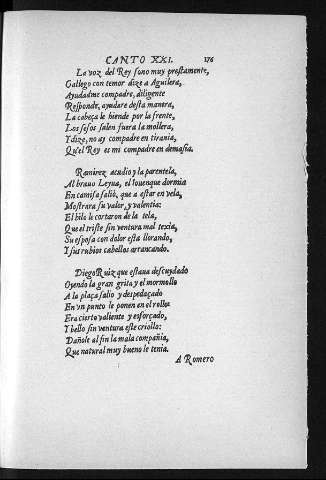 CANTO XXI. 176
La voz del Rey sono muy prestamente,
Gallego con temor dize a Aguilera,
Ayudadme compadre, diligente
Responde, ayudare desta manera,
La cabeça le hiende por la frente,
Los sesos salen fuera la mollera,
Y dize, no ay compadre en tirania,
Qu'el Rey es mi compadre en demasia.
Ramirez acudio y la parentela,
Al brauo Leyua, el louenque dormia
En camisa saliò, que a estar en vela,
Mostrara su valor, y valentia:
El hilo le cortaron de la tela,
Que el triste sin ventura mal texia,
Su esposa con dolor esta llorando,
Y sus rubios cabellos arrancando.
Diego Ruiz que estaua descuydado
Oyendo la gran grita y el mormollo
A la plaça salio y despedaçado
En vn punto le ponen en el rollo:
Era cierto valiente y esforçado,
Y bello sin ventura este criollo:
Dañole al fin la mala compañia,
Que natural muy bueno le tenia.
A Romero